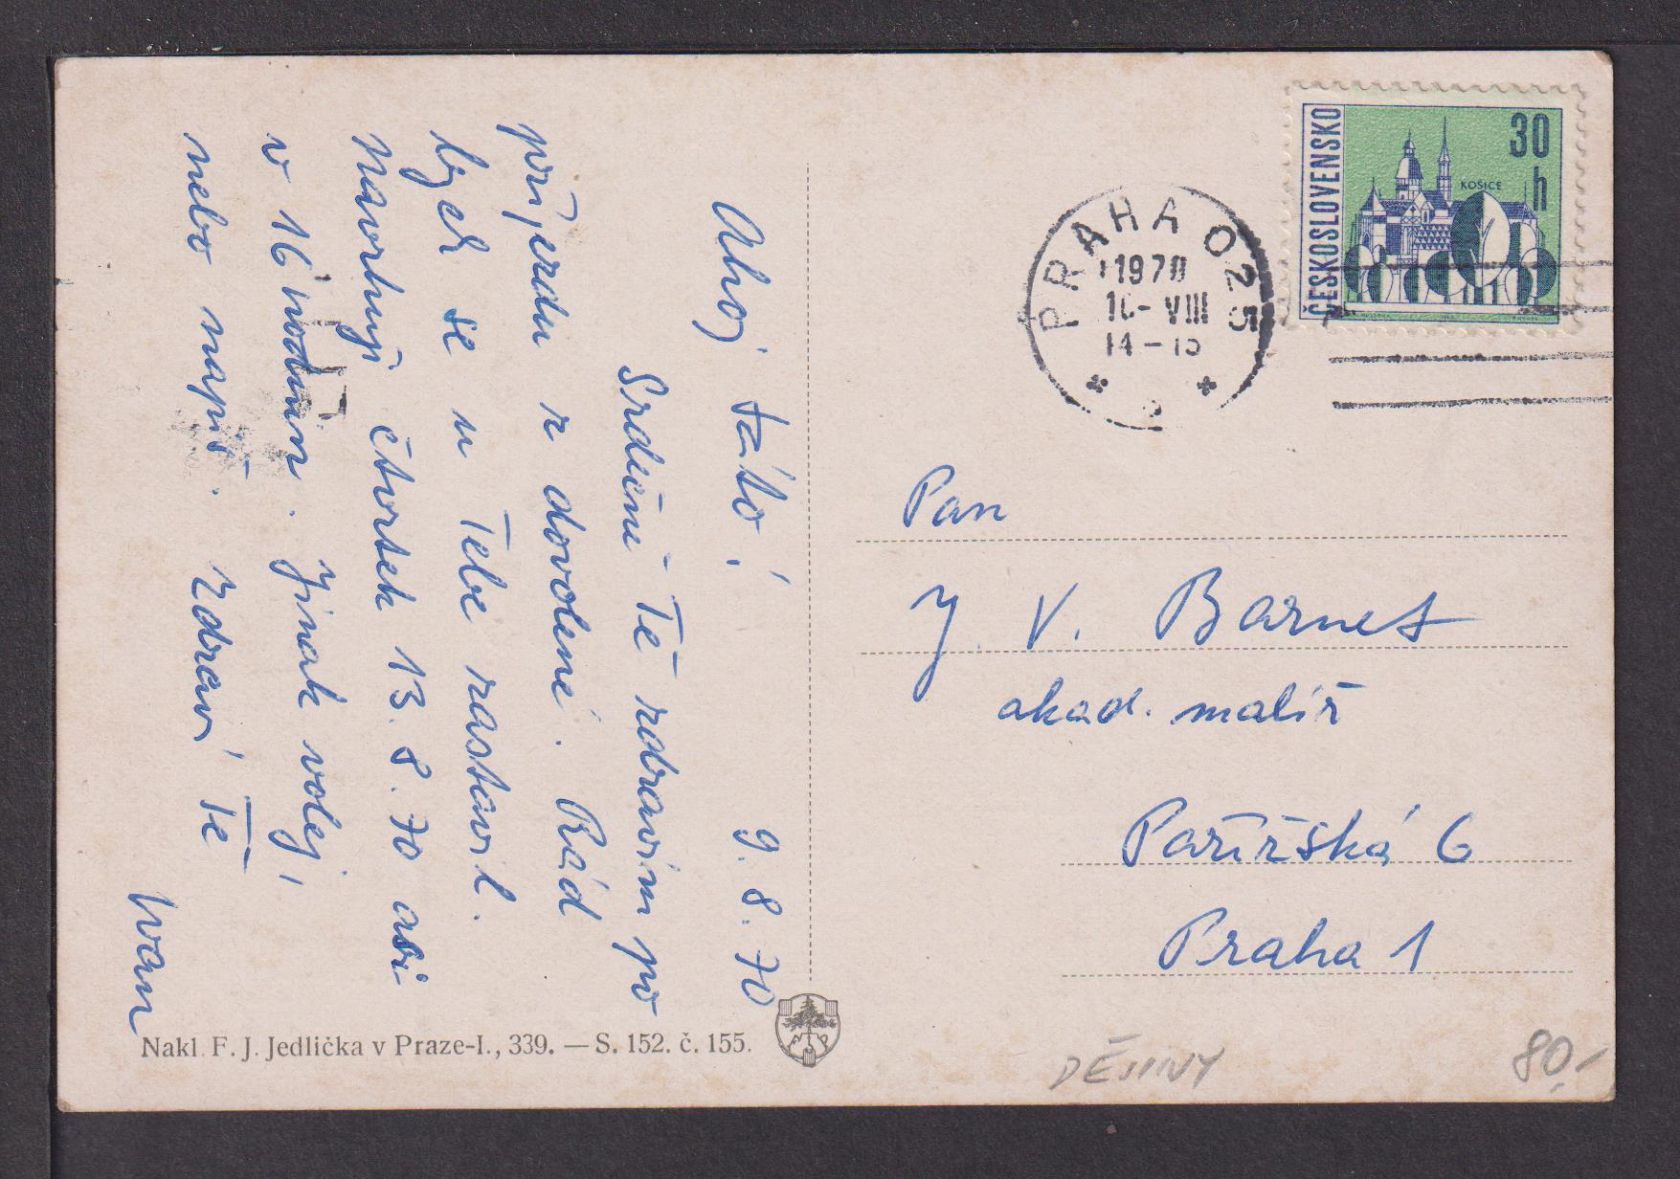 Ahoj táto! 9. 8. 70
Srdečně Tě zdravím po
příjezdu z dovolené. Rád
bych se u Tebe zastavil.
Navrhuji čtvrtek 13. 8. 70 asi
v 16 hodin. Jinak volej,
nebo napiš. Zdraví Tě
Ivan
Nakl. F. J. Jedlička v Praze-I., 339. — S. 152. č. 155.
ČESKOSLOVENSKO
30 h
KOŠICE
PRAHA 025
1970
10-VIII
14-15
Pan
J. V. Barnet
akad. malíř
Pařížská 6
Praha 1
DĚJINY
80,-